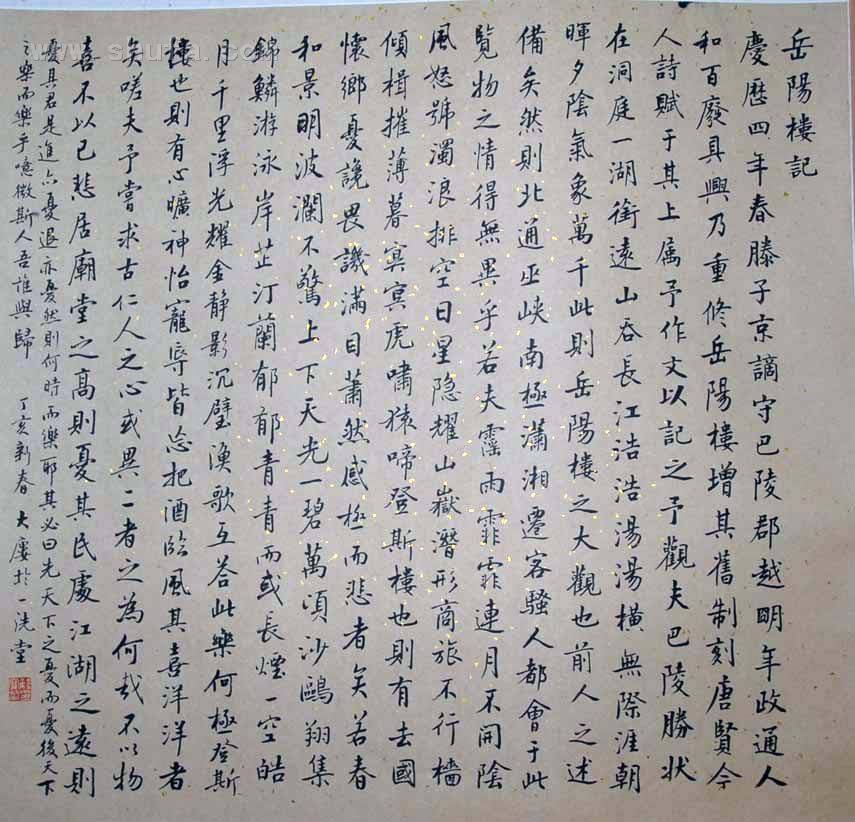 岳陽樓記
慶歷四年春滕子京謫守巴陵郡越明年政通人
和百廢具興乃重修岳陽樓增其舊制刻唐賢今
人詩賦于其上属予作文以記之予觀夫巴陵勝状
在洞庭一湖銜遠山吞長江浩浩湯湯橫無際涯朝
暉夕陰氣象萬千此則岳陽樓之大觀也前人之述
備矣然則北通巫峽南極瀟湘遷客騷人都會于此
覽物之情得無異乎若夫霪雨霏霏連月不開陰
風怒號濁浪排空日星隐耀山嶽潛形商旅不行檣
傾楫摧薄暮冥冥虎嘯猿啼登斯樓也則有去國
懷鄉憂讒畏譏滿目蕭然感極而悲者矣若春
和景明波瀾不驚上下天光一碧萬頃沙鷗翔集
錦鱗游泳岸芷汀蘭郁郁青青而或長煙一空皓
月千里浮光耀金静影沉璧漁歌互答此樂何極登斯
樓也則有心曠神怡寵辱皆忘把酒臨風其喜洋洋者
矣嗟夫予嘗求古仁人之心或異二者之為何哉不以物
喜不以己悲居廟堂之高則憂其民處江湖之遠則
憂其君是進亦憂退亦憂然則何時而樂耶其必曰先天下之憂而憂後天下
之樂而樂乎噫微斯人吾誰與歸 丁亥新春 大廖於一洗堂